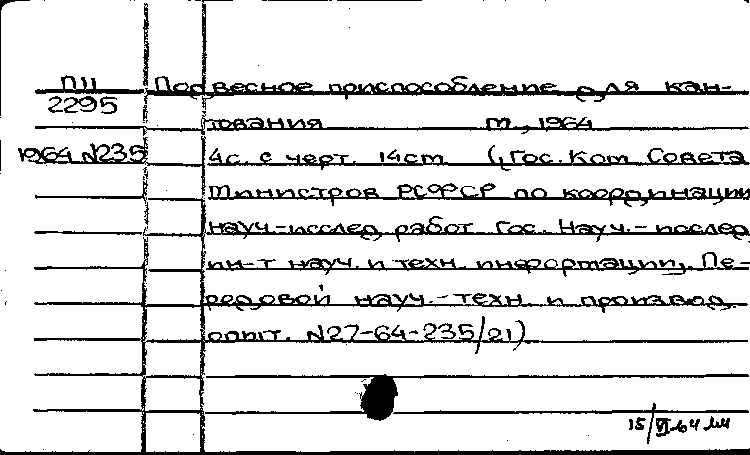 П11 Подвесное приспособление для кан-
2295
тования М., 1964
1964 N235 4с. с черт. 14см (Гос. Ком Совета
Министров РСФСР по координации
науч-исслед. работ Гос. Науч.-исслед
ин-т науч. и техн. информации, Пе-
редовой науч.-техн. и производ.
опыт. N27-64-235/21)
15/VI-64